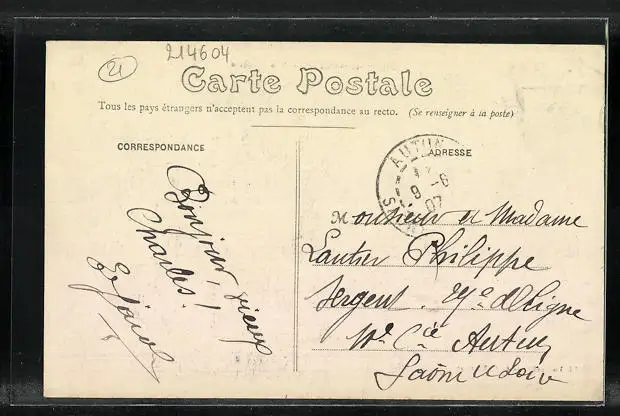 214604
21
Carte Postale
Tous les pays étrangers n'acceptent pas la correspondance au recto. (Se renseigner à la poste)
CORRESPONDANCE
ADRESSE
AUTUN
9 -6
07
Bonjour, vieux
Charles!
Monsieur et Madame
Lautier Philippe
Sergent. 29e de Ligne
Cie Autun
Saône et Loire